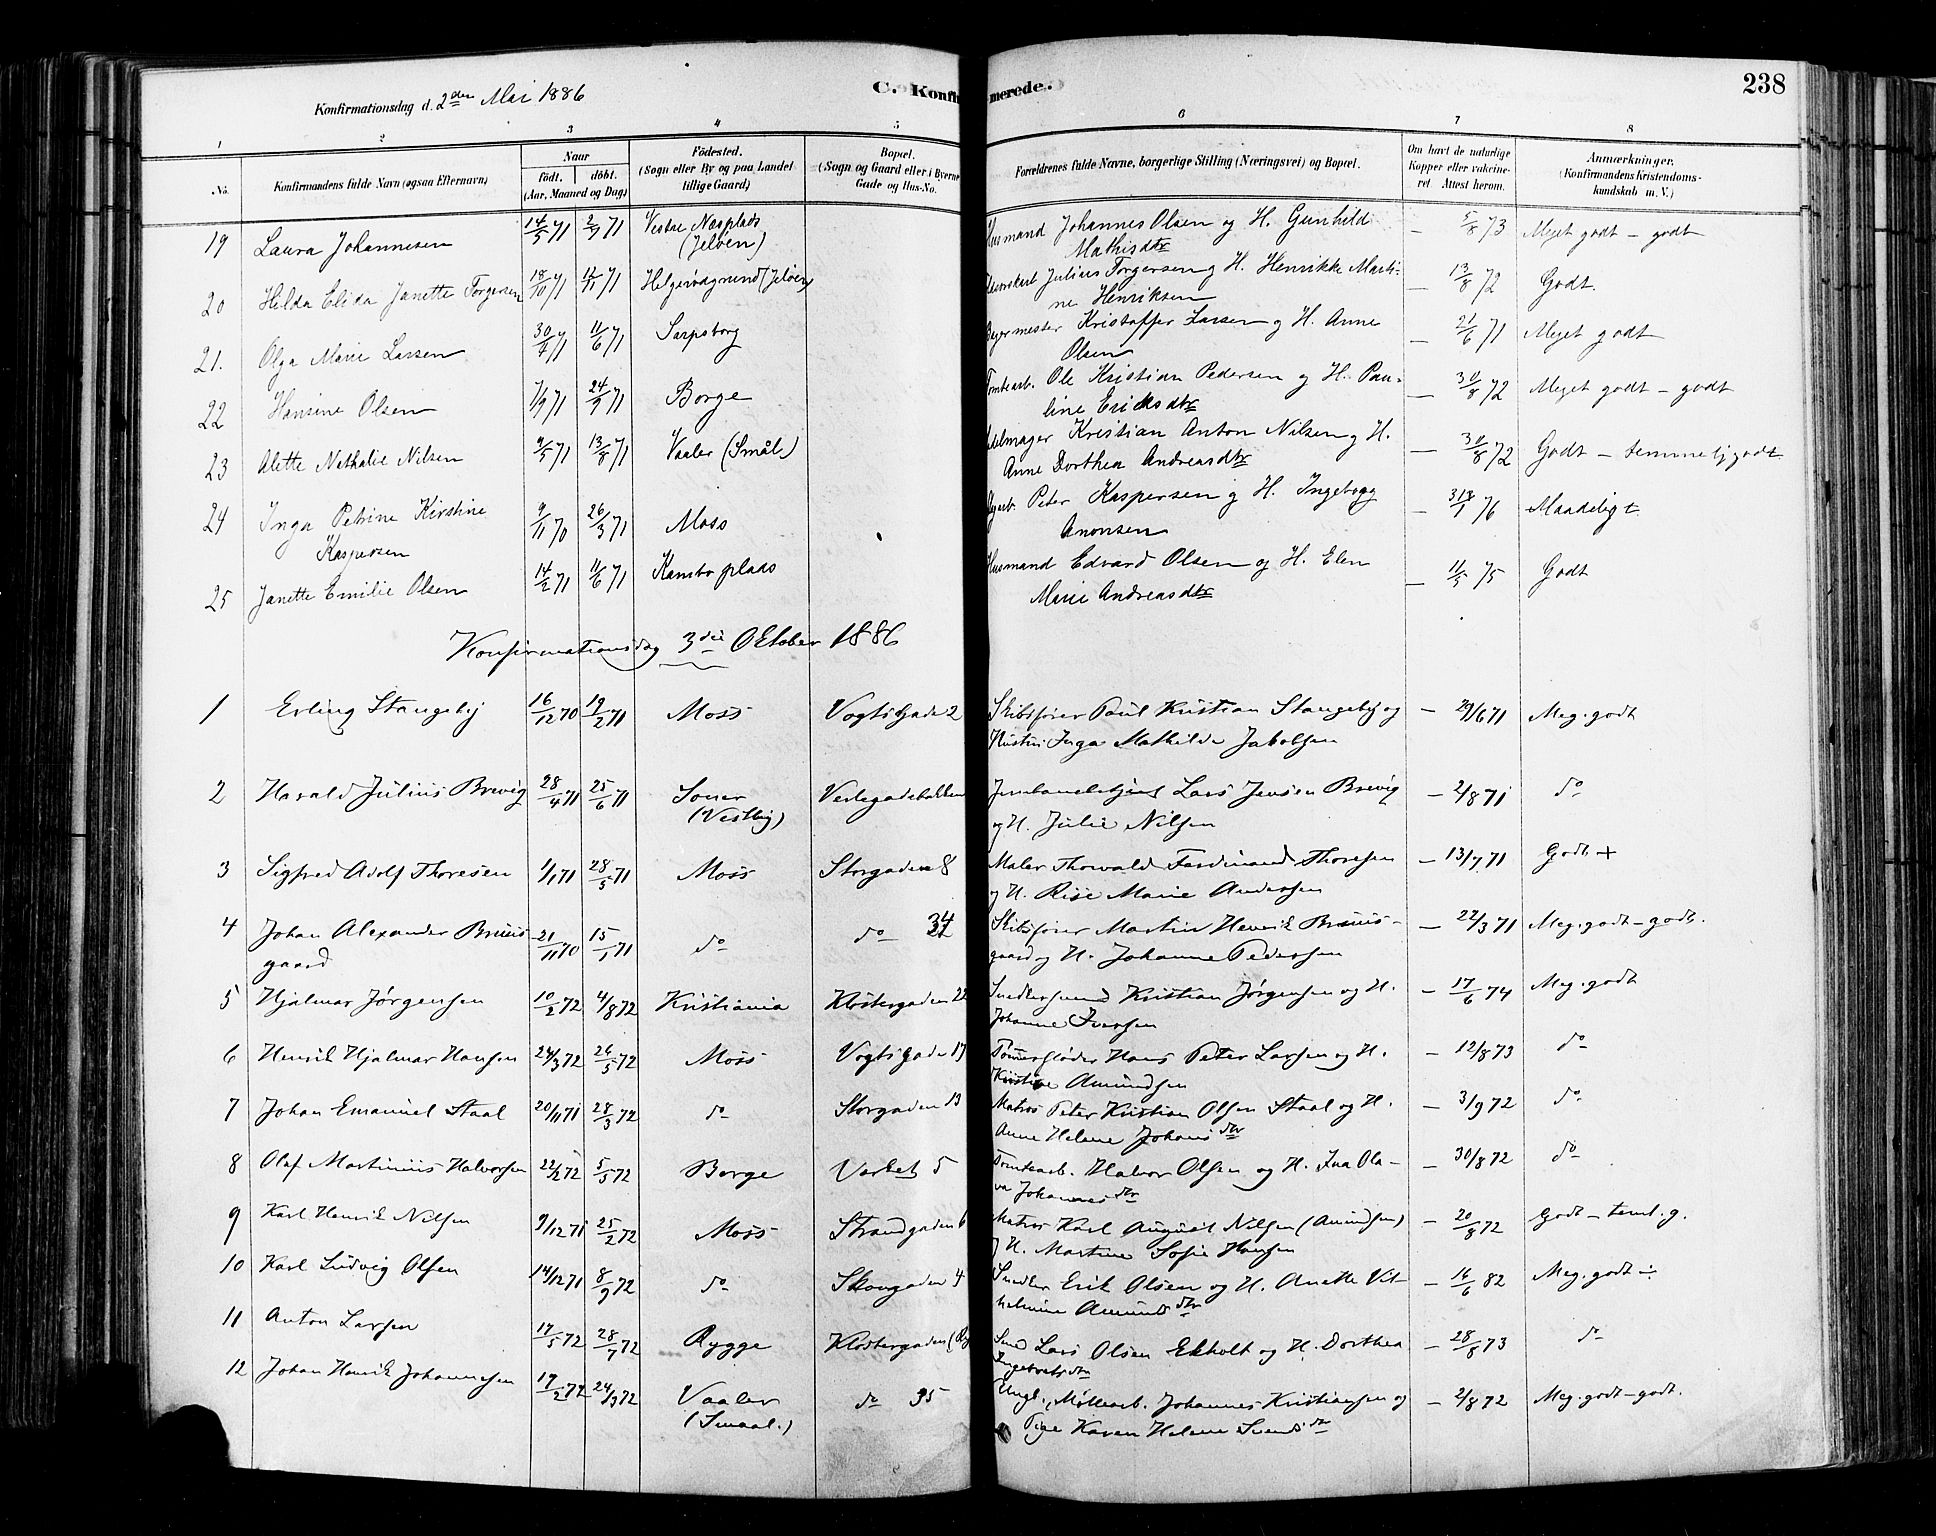 238
Konfirmationsdag d. 2den Mai 1886
C. Konfirmerede.
1 2 3 4 5 6 7 8
No. Konfirmandens fulde Navn (ogsaa Efternavn) Naar Födt. döbt. (Aar, Maaned og Dag) Födested. (Sogn eller By og paa Landet tillige Gaard) Bopæl. (Sogn og Gaard eller i Byerne Gade og Hus-No. Forældrenes fulde Navne, borgerlige Stilling (Næringsvei) og Bopæl. Om havt de naturlige Kopper eller vakcineret Attest herom. Anmærkninger. (Konfirmandens Kristendomskundskab m. V.)
19 Laura Johannesen 14/5 71 2/7 71 Vestre Næsplads (Jeløen) Husmand Johannes Olsen og H. Gunhild Mathisdtr — 5/8 73 Meget godt – godt
20 Hilda Elida Janette Torgersen 18/10 71 12/11 71 Helgerødgrund (Jeløen) Julius Torgersen og H. Henrikke Martine Henriksen — 13/8 72 Godt.
21. Olga Marie Larsen 30/4 71 11/6 71 Sarpsborg Kristoffer Larsen og H. Anne Olsen — 21/6 71 Meget godt
22 Hansine Olsen 7/9 71 24/9 71 Borge Tomtearb. Ole Kristian Pedersen og H. Pauline Ericksdtr — 30/8 72 Meget godt – godt
23 Alette Nathalie Nilsen 9/5 71 13/8 71 Vaaler (Smål.) Kristian Anton Nilsen og H. Anne Dorthea Andreasdtr — 30/8 72 Godt – temmeligodt
24 Inga Petrine Kirstine Kaspersen 9/11 70 26/3 71 Moss Peter Kaspersen og H. Ingeborg Aronsen — 76 Maadeligt
25 Janette Emilie Olsen 14/2 71 11/6 71 Kambo plads Husmand Edvard Olsen og H. Elen Marie Andreasdtr — 11/5 75 Godt
Konfirmationsdag 3die Oktober 1886
1 Erling Stangeby 16/12 70 19/2 71 Moss Vogtsgade 2 Skibsfører Paul Kristian Stangeby og Hustru Inga Mathilde Jakobsen — 29/6 71 Meg. godt
2 Harald Julius Brevig 28/4 71 25/6 71 Soner (Vestby) Verlegadebakken Lars Jensen Brevig og H. Julie Nilsen — 2/8 71 do
3 Sigfred Adolf Thoresen 1/1 71 28/5 71 Moss Storgaden 8 Maler Thorvald Ferdinand Thoresen og H. Risé Marie Andersen — 13/7 71 Godt +
4 Johan Alexander Bruusgaard 21/11 70 15/1 71 do do 34 Skibsfører Martin Henrik Bruusgaard og H. Johanne Pedersen — 22/3 71 Meg. godt – godt.
5 Hjalmar Jørgensen 10/2 72 4/8 72 Kristiania Klostergaden 22 Snedkersvend Kristian Jørgensen og H. Johanne Iversen — 17/6 74 Meg. godt
6 Henrik Hjalmar Hansen 24/3 72 26/5 72 Moss Vogtsgaden 17 Tømmerfløder Hans Peter Larsen og H. Kristine Amundsen — 12/8 73 do
7 Johan Emanuel Staal 20/11 71 28/3 72 do Storgaden 13 Matros Peter Kristian Olsen Staal og H. Anne Helene Johansdtr — 3/9 72 do
8 Olaf Martinius Halvorsen 22/2 72 5/5 72 Borge Verket 5 Tomtearb. Halvor Olsen og H. Ina Olava Johannesdtr — 30/8 72 do
9 Karl Henrik Nilsen 9/12 71 25/2 72 Moss Strandgaden 6 Matros Karl August Nilsen (Amundsen) og H. Martine Sofie Hansen — 20/8 72 Godt – teml. g.
10 Karl Ludvig Olsen 14/12 71 8/9 72 do Skovgaden 4 Snedker Erik Olsen og H. Anette Vilhelmine Amundsdtr — 16/6 82 Meg. godt ÷
11 Anton Larsen 17/5 72 28/7 72 Rygge Klostergaden Lars Olsen Ekholt og H. Dorthea Ingebretsdtr — 28/8 73 do
12 Johan Henrik Johannesen 19/2 72 24/3 72 Vaaler (Smaal.) do 35 Ungk., Møllearb. Johannes Kristiansen og Pige Karen Helene Svendsdtr — 2/8 72 Meg. godt – godt.